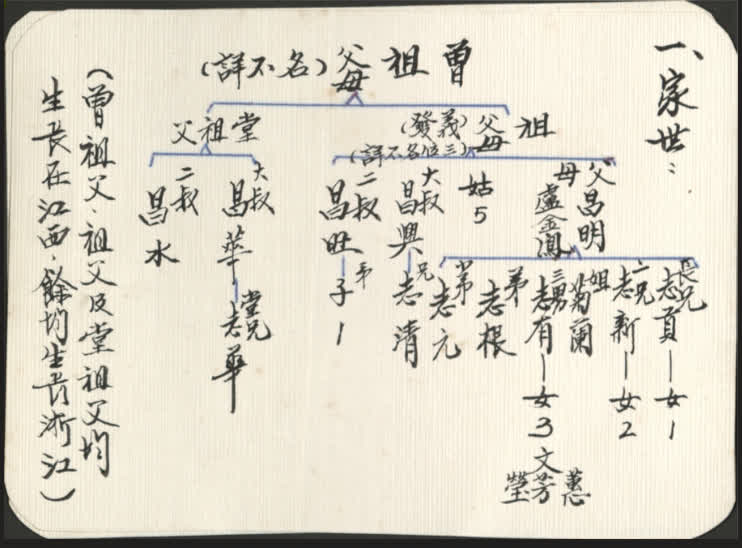 一、家世：
曾祖父母（名不詳）
祖父母（義發）
（三位名不詳）
堂祖父
父昌明
母盧金鳳
姑5
大叔昌興
二叔昌旺
大叔昌華
二叔昌水
長兄志貢—女1
二兄志新—女2
姐菊蘭
三男志有—女3
文蕙
芳
瑩
弟志根
小弟志元
兄志清
弟子1
堂兄志華
（曾祖父、祖父及堂祖父均
生長在江西，餘均生長浙江）